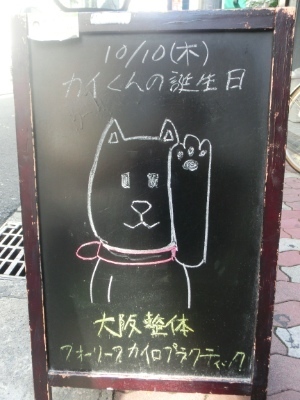 10/10(木)
カイくんの誕生日
大阪整体
フォーリーブスカイロプラクティック